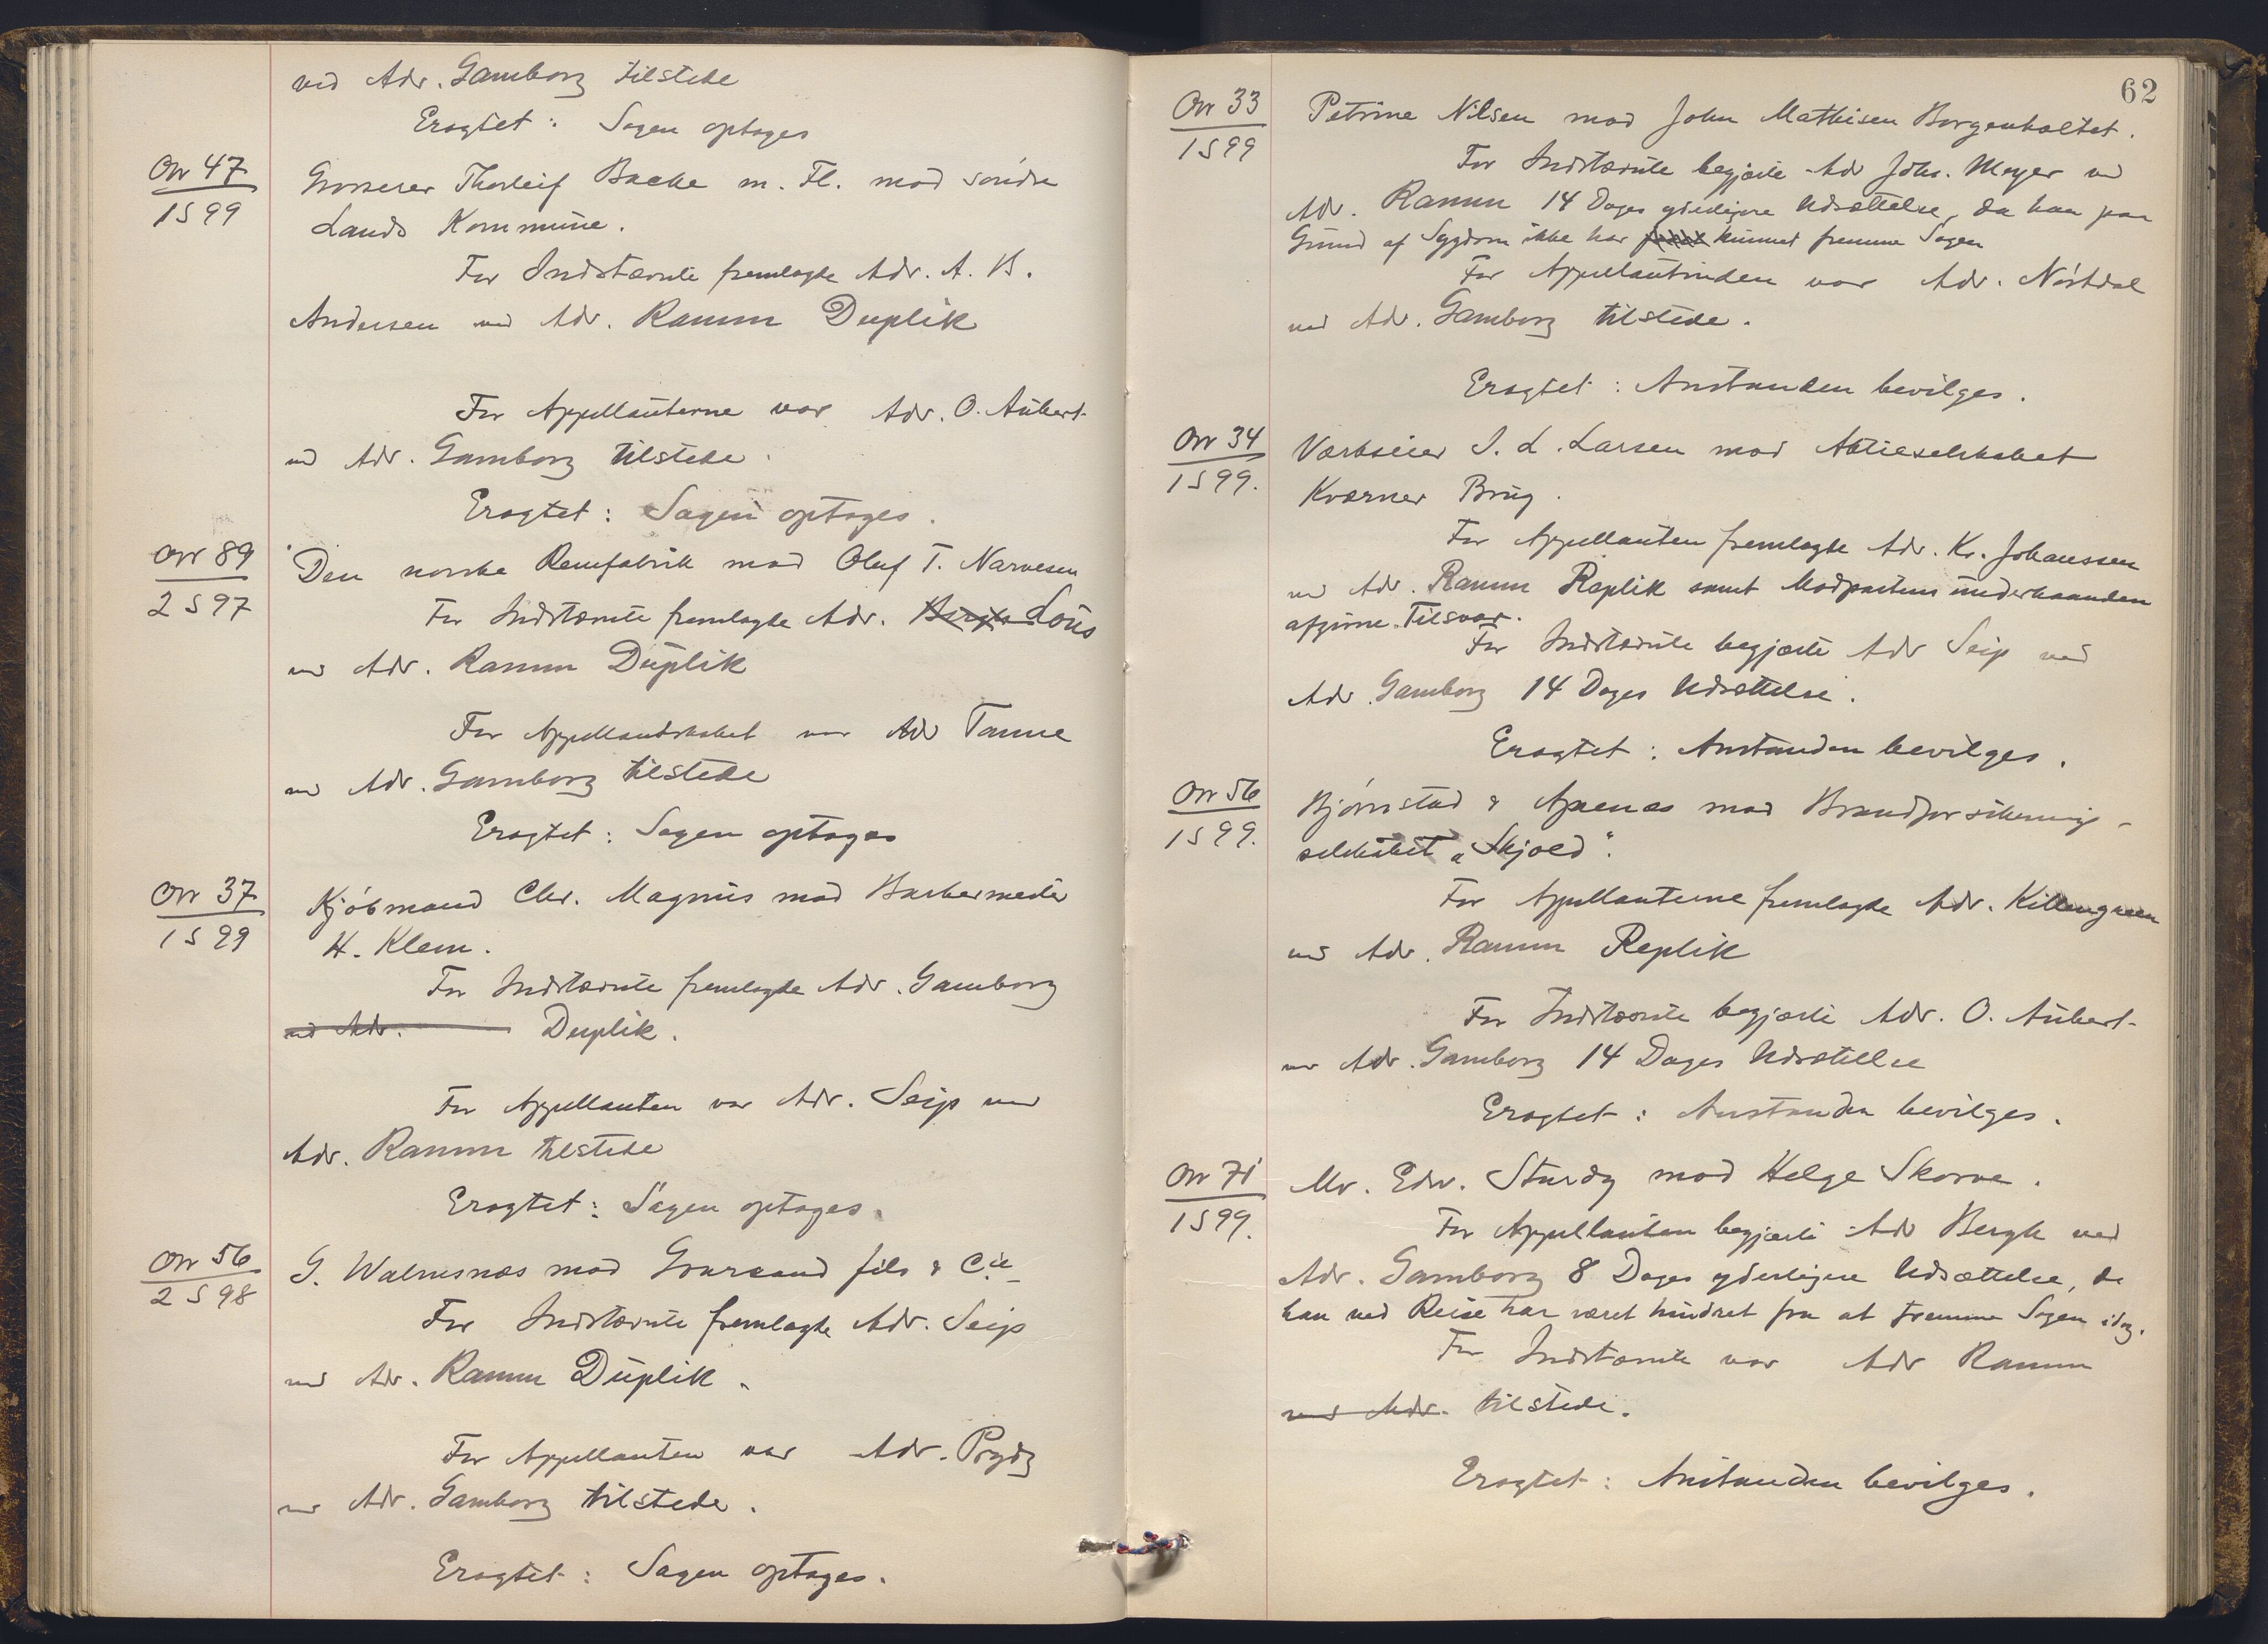 ved Adv. Gamborg tilstede
Eragtet: Sagen optages
Ov 47
1 S 99
Grosserer Thorleif Bache m. Fl. mod søndre
Lands Kommune.
For Indstævnte fremlagde Adv. A. B.
Andersen ved Adv. Ramm Duplik
For Appellanterne var Adv. O. Aubert
ved Adv. Gamborg tilstede.
Eragtet: Sagen optages.
Ov 89
2 S 97
Den norske Remfabrik mod Oluf T. Narvesen
For Indstævnte fremlagde Adv. Bergh Lous
ved Adv. Ramm Duplik
For Appellantskabet var Adv Tanne
ved Adv. Gamborg tilstede
Eragtet: Sagen optages
Ov 37
1 S 99
Kjøbmand Chr. Magnus mod Barbermester
H. Klem.
For Indstævnte fremlagde Adv. Gamborg
ved Adv. Duplik.
For Appellanten var Adv. Seip ved
Adv. Ramm tilstede
Eragtet: Sagen optages.
Ov 56
2 S 98
G. Walnesnæs mod fils & Cie
For Indstævnte fremlagde Adv. Seip
ved Adv. Ramm Duplik.
For Appellanten var Adv. Prydz
ved Adv. Gamborg tilstede.
Eragtet: Sagen optages.
62
Ov 33
1 S 99
Petrine Nilsen mod John Mathisen Borgenholtet.
For Indstævnte begjærte Adv Johs. Meyer ved
Adv. Ramm 14 Dages yderligere Udsættelse, da han paa
Grund af Sygdom ikke har kunnet fremme Sagen
For Appellantinden var Adv. Nørtdal
ved Adv. Gamborg tilstede.
Eragtet: Anstanden bevilges.
Ov 34
1 S 99.
Værkseier I. L. Larsen mod Aktieselskabet
Kværner Brug.
For Appellanten fremlagde Adv. Kr. Johanssen
ved Adv. Ramm Replik samt Modpartens underhaanden
afgivne Tilsvar.
For Indstævnte begjærte Adv Seip ved
Adv. Gamborg 14 Dages Udsættelse.
Eragtet: Anstanden bevilges.
Ov 56
1 S 99.
Bjørnstad & Apenæs mod Brandforsikrings-
selskabet „Skjold".
For Appellanterne fremlagde Adv. Killengreen
ved Adv. Ramm Replik
For Indstævnte begjærte Adv. O. Aubert
ved Adv. Gamborg 14 Dages Udsættelse
Eragtet: Anstanden bevilges.
Ov 71
1 S 99.
Mr. Edw. Sturdy mod Helge Skorve.
For Appellanten begjærte Adv Bergh ved
Adv. Gamborg 8 Dages yderligere Udsættelse, da
han ved Reise har været hindret fra at fremme Sagen idag.
For Indstævnte var Adv Ramm
ved Adv. tilstede.
Eragtet: Anstanden bevilges.